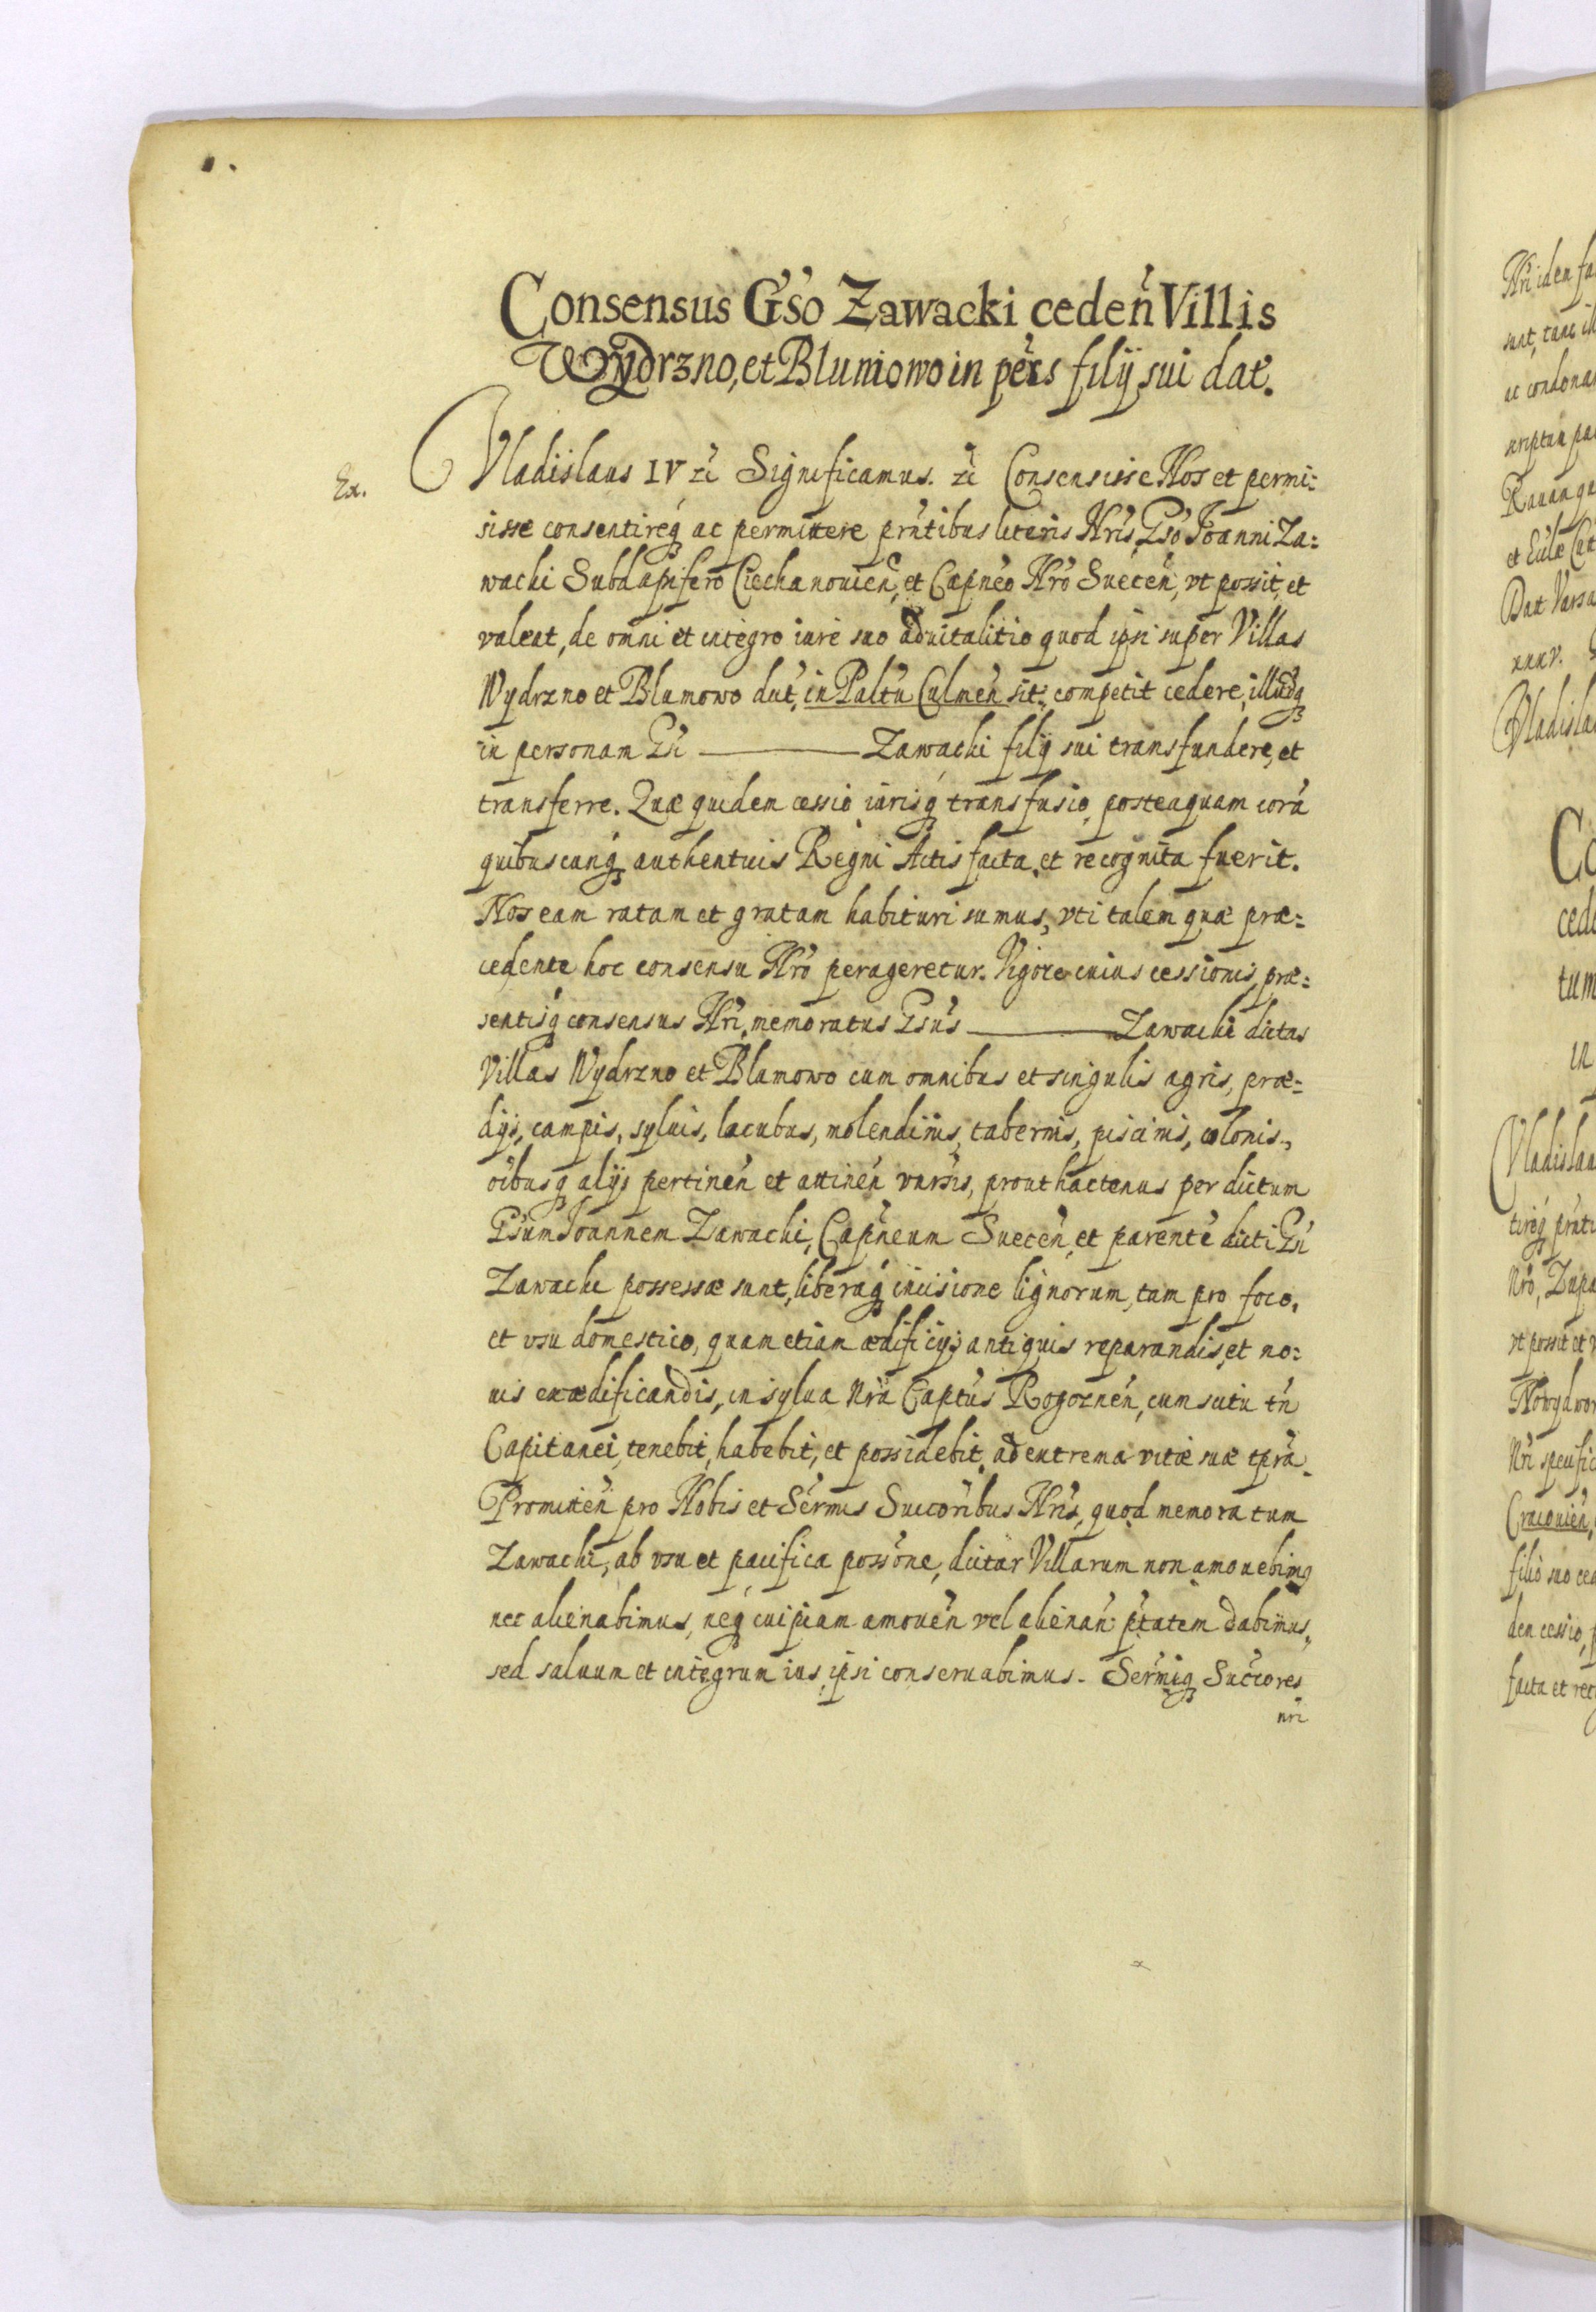 Consensus G's'o Zawacki ceden̄ Villis
Wydrzno, et Blumowo in pers filij sui dat.
Ex.
Vladislaus IV zc Significamus. zc Consensisse Nos et permi:
sisse consentireq ac permittere pñtibus literis Nris, Gso Joanni Za:
wacki Subdapifero Ciechanouien, et Capneo Nro Suecen, vt possit, et
valeat, de omni et integro iure suo aduitalitio quod ipsi super Villas
Wydrzno et Blumowo dut, in Paltu Culmen sit: competit cedere, illudq
in personam Gsi ——— Zawacki filij sui transfundere, et
transferre. Quæ quidem cessio, iurisq transfusio, posteaquam corã
quibuscunq authenticis Regni Actis facta, et recognita fuerit.
Nos eam ratam et gratam habituri sumus, vti talem quæ præ:
cedente hoc consensu Nro perageretur. Vigore cuius cessionis, præ:
sentisq consensus Nri, memoratus Gsus ——— Zawacki dictas
Villas Wydrzno et Blumowo cum omnibus et singulis agris, præ:
dijs, campis, syluis, lacubus, molendinis, tabernis, piscinis, colonis,
oibusq alijs pertinen et attinen vnrsis, prout hactenus per dictum
Gsum Joannem Zawacki, Capneum Suecen, et parente dicti Gsi
Zawacki possessæ sunt, liberaq incisione lignorum, tam pro foco,
et vsu domestico, quam etiam ædificijs antiquis reparandis, et no:
uis exædificandis, in sylua nra Captus Rogoznen, cum scitu tn
Capitanei, tenebit, habebit, et possidebit, ad extrema vitæ suæ tpra.
Promitten pro Nobis et Sermis Succoribus Nris, quod memoratum
Zawacki, ab vsu et pacifica possone, dictar Villarum non amouebimq
nec alienabimus, neq cuipiam amouen vel alienan: ptatem dabimus,
sed saluum et integrum ius, ipsi conseruabimus. Sermiq Succores
nri